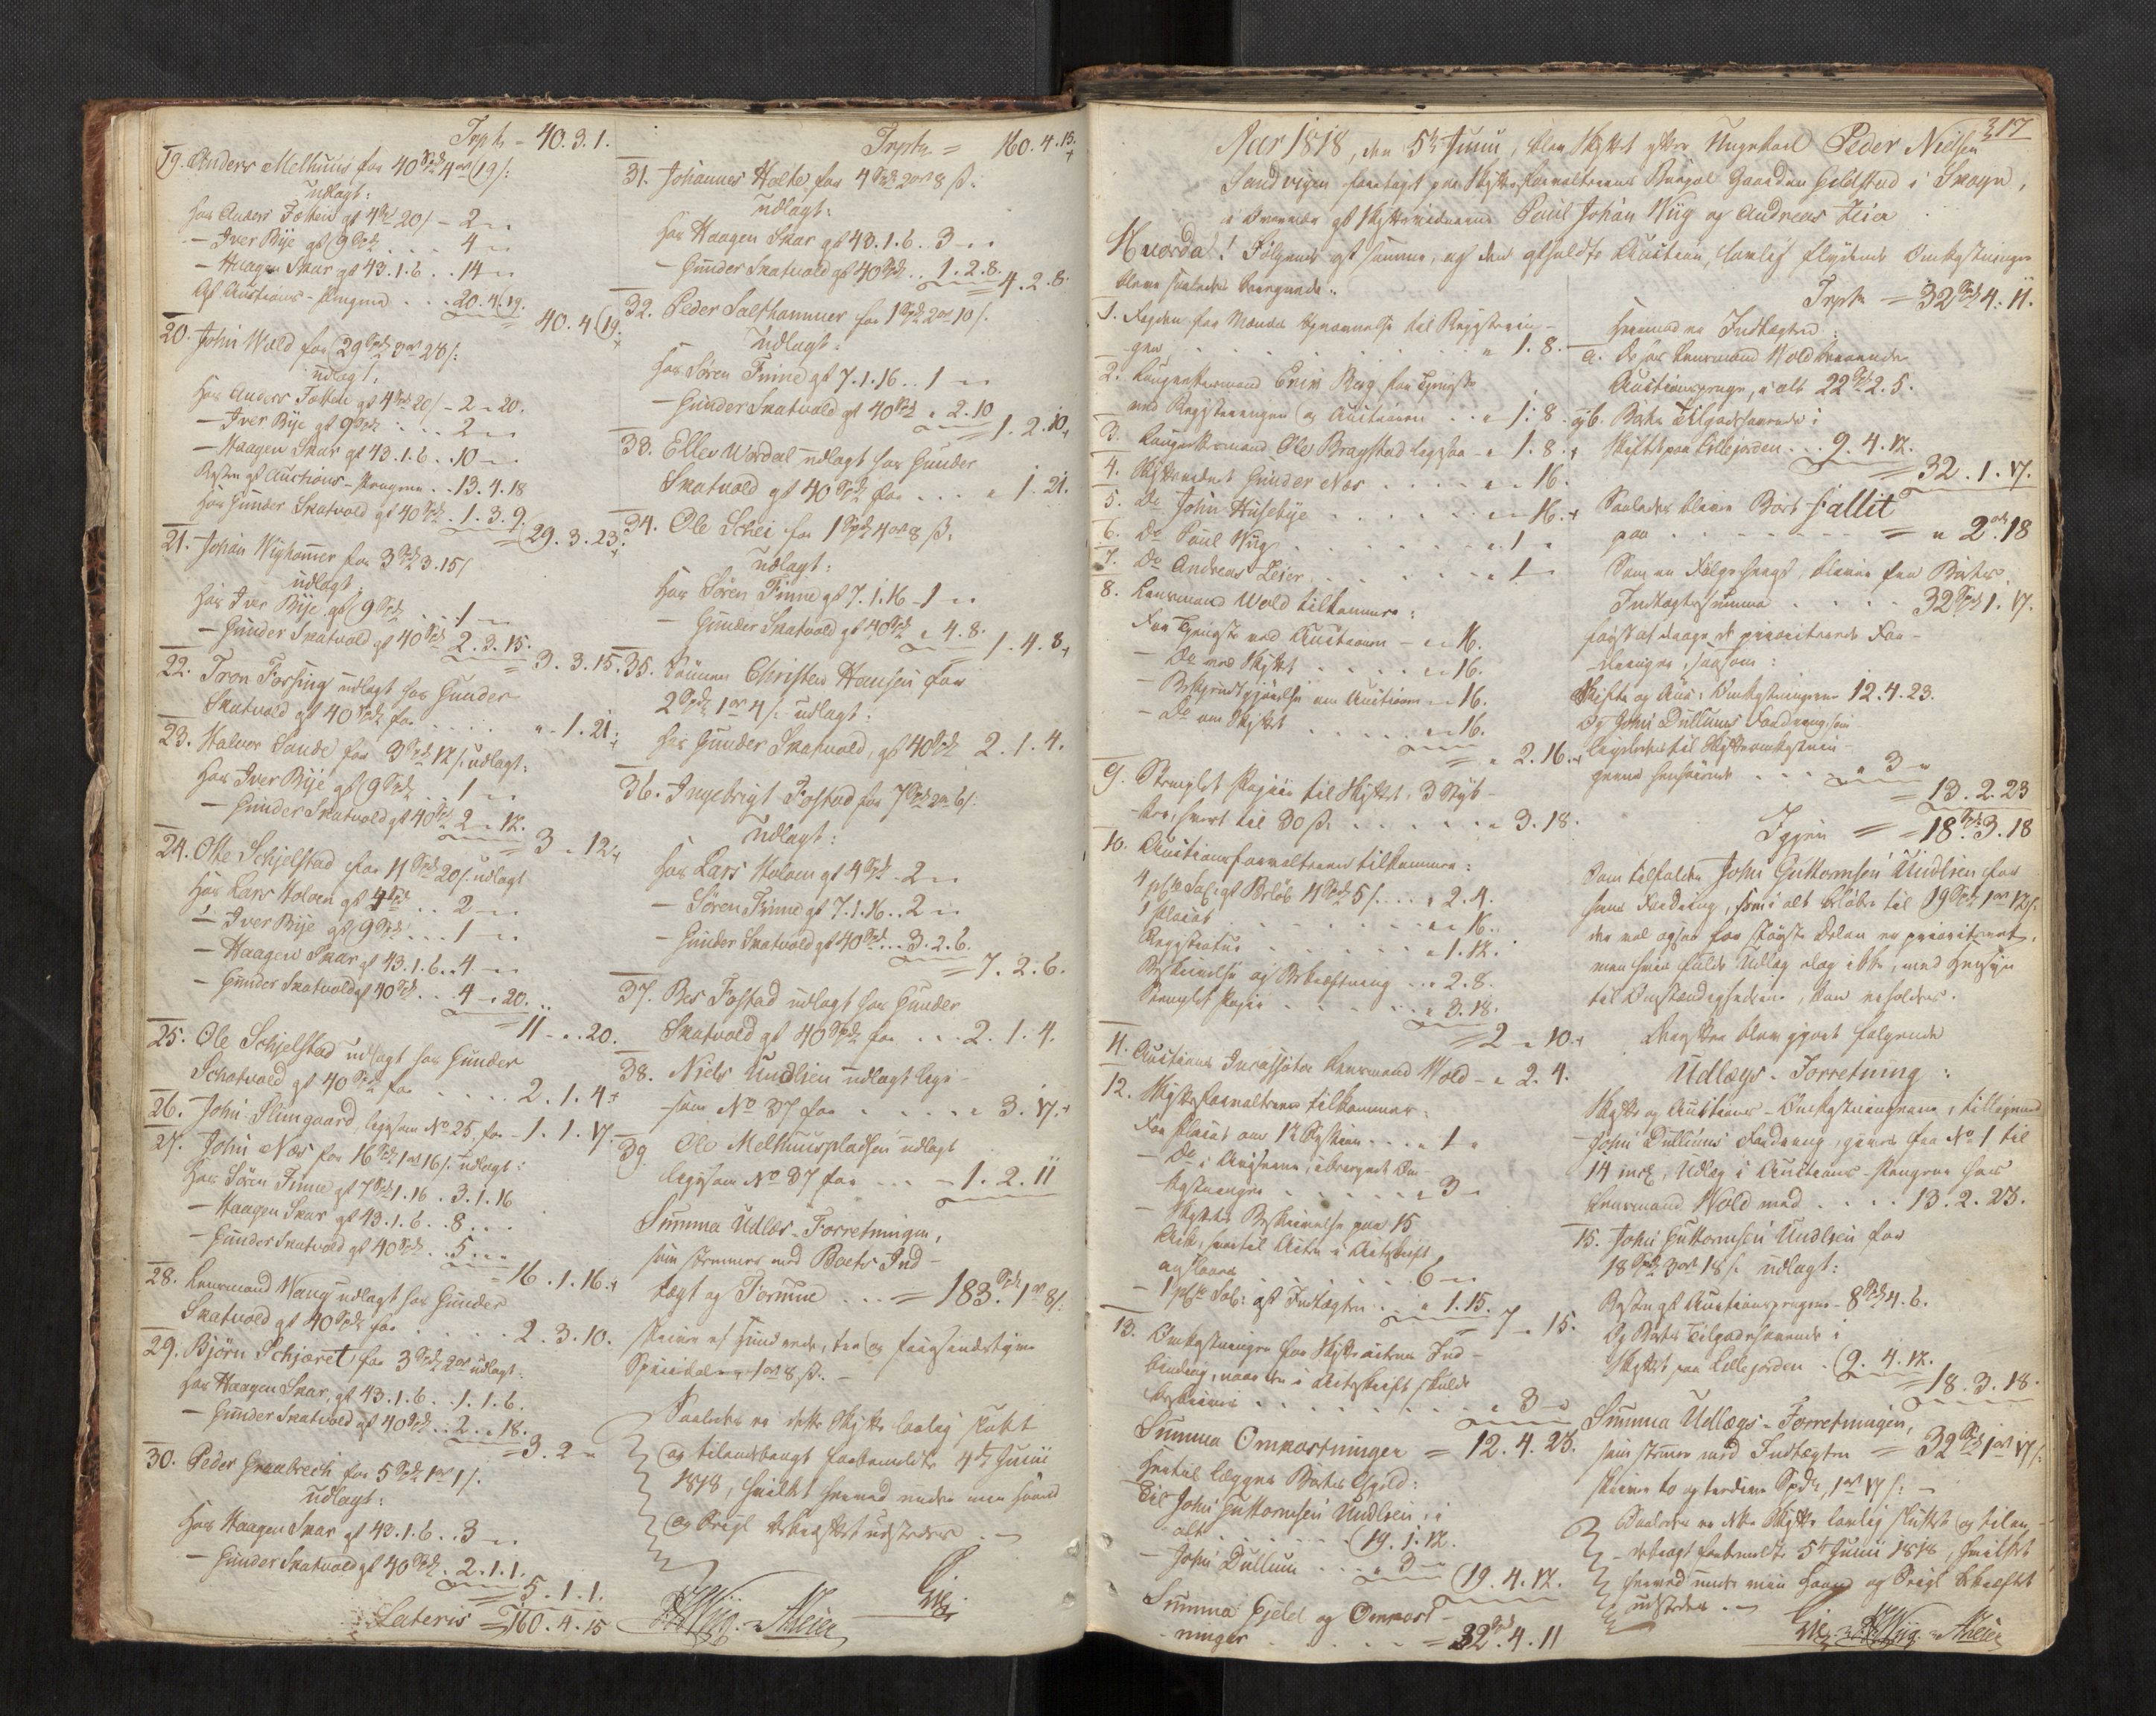 Trpt – 40.3.1.
19. Anders Melhuus for 40 Spd 4 ort 19 s:
udlagt:
hos Anders Fættin af 4 Spd 20 s – 2 „ „
– Iver Bije af 9 Spd . . . 4 „ „
– Haagen Skar af 43.1.6 . . 14 „ „
Af Auctions-Pengene . . . 20.4.19.
40.4.19.
20. John Wold for 29 Spd 3 ort 23 s:
udlagt:
hos Anders Fættin af 4 Spd 20 s – 2 „ 20.
– Iver Bije af 9 Spd . . . 2 „ „
– Haagen Skar af 43.1.6 . . 10 „ „
Resten af Auctions-Pengene . . 13.4.18
hos Gunder Skatvold af 40 Spd . 1.3.9.
29.3.23.
21. Johan Wighammer for 3 Spd 3.15 s
udlagt:
hos Iver Bije af 9 Spd . . 1 „ „
– Gunder Skatvold af 40 Spd 2.3.15.
3.3.15.
22. Tron Forsing udlagt hos Gunder
Skatvold af 40 Spd for . . . . „ 1.21.
23. Halvor Sande for 3 Spd 12 s. udlagt:
hos Iver Bije af 9 Spd . . 1 „ „
– Gunder Skatvold af 40 Spd 2 „ 12.
3 „ 12
24. Olle Schjelstad for 11 Spd 20 s. udlagt
hos Lars Holoen af 4 Spd . . 2 „ „
– Iver Bije af 9 Spd . . . 1 „ „
– Haagen Skar af 43.1.6 . . 4 „ „
– Gunder Skatvold af 40 Spd . . . 4 „ 20.
11 „ 20.
25. Ole Schjelstad udlagt hos Gunder
Schatvold af 40 Spd for . . . . 2.1.4
26. John Slungaard, ligesom No 25, for – 1.1.17.
27. John Næs for 16 Spd 1 ort 16 s. udlagt:
hos Sören Finne af 7 Spd 1.16 . 3.1.16
– Haagen Skar af 43.1.6 . . 8 . . .
– Gunder Skatvold af 40 Spd . . 5 „ „
16.1.16.
28. Lensmand Wang udlagt hos Gunder
Skatvold af 40 Spd for . . . . . 2.3.10.
29. Björn Schjæret for 3 Spd 2 ort udlagt:
hos Haagen Skar, af 43.1.6 . . 1.1.6.
– Gunder Skatvold af 40 Spd . . 2 „ 18.
3.2 „
30. Peder Graabreck for 5 Spd 1 ort 1 s.
udlagt:
hos Haagen Skar af 43.1.6 . . 3 „ „
– Gunder Skatvold af 40 Spd . 2.1.1.
5.1.1.
Lateris = 160.4.15
Trpt = 160.4.15.
31. Johannes Holte for 4 Spd 2 ort 8 s:
udlagt:
hos Haagen Skar af 43.1.6 . 3 „ „
– Gunder Skatvold af 40 Spd . . 1.2.8.
4.2.8.
32. Peder Salthammer for 1 Spd 2 ort 10 s.
udlagt:
hos Sören Finne af 7.1.16 . . 1 „ „
– Gunder Skatvold af 40 Spd „ 2.10
1.2.10
33. Ellev Wordal udlagt hos Gunder
Skatvold af 40 Spd for . . . „ 1.21.
34. Ole Schei for 1 Spd 4 ort 8 s.
udlagt:
hos Sören Finne af 7.1.16 – 1 „ „
– Gunder Skatvold af 40 Spd „ 4.8.
1.4.8
35. Sönnen Christen Hansen for
2 Spd 1 ort 4 s. udlagt:
hos Gunder Skatvold, af 40 Spd 2.1.4.
36. Ingebrigt Fostad for 7 Spd 2 ort 6 s:
udlagt:
hos Lars Holoen af 4 Spd . 2 „ „
– Sören Finne af 7.1.16 . . 2 „ „
– Gunder Skatvold af 40 Spd . . . 3.2.6.
7.2.6.
37. Bes Fostad udlagt hos Gunder
Skatvold af 40 Spd for . . . 2.1.4.
38. Niels Undlien udlagt lige-
som No 37 for . . . . . „ 3.17.
39. Ole Melhuuspladsen udlagt
ligesom No 37 for . . . – 1.2.11
Summa Udlægs-Forretningen,
som stemmer med Boets Ind-
tægt og Formue . . . = 183 Spd 1 ort 8 s.
skriver et Hundrede, tre og fiirgesindstyve
Speciedaler 1 ort 8 s. –
Saaledes er dette Skifte lovlig sluttet
og tilendebragt forbemeldte 4de Junii
1818, hvilket herved under min Haand
og Seigl bekræftet udstedes. –
PJWiig. AZeier
317
Aar 1818, den 5te Junii, blev Skiftet efter Ungekarl Peder Nielsen
Sandvigen foretaget paa Skifteforvalterens Boepæl Gaarden Geldstad i Skogn,
i Overvær af Skiftevidnerne Paul Johan Wiig og Andreas Zeier
Hvorda! Følgende af samme, og den afholdte Auction, lovlig flydende Omkostninger
bleve saaledes beregnede:
1. Fogden for Mænds Opnævnelse til Registerin-
gen . . . . . . . . „ 1.8.
2. Laugrettesmand Erik Berg for Tieneste
ved Registeringen og Auctionen . . „ 1.8
3. Laugrettesmand Ole Bragstad ligesaa – „ 1.8.
4. Skiftevidnet Gunder Næs . . . . „ „ 16.
5. Do John Husebije . . . . . „ „ 16.
6. Do Paul Wiig . . . . . . „ 1 „
7. Do Andreas Zeier . . . . . „ 1 „
8. Lensmand Wold tilkommer:
For Tieneste ved Auctionen – „ „ 16.
– Do ved Skiftet . . . . „ „ 16.
– Bekjendtgjørelse om Auctionen „ „ 16.
– Do om Skiftet . . . . . „ „ 16.
„ 2.16.
9. Stemplet Papiir til Skiftet, 3 Styk-
ker, hvert til 30 s. . . . . . „ 3.18.
10. Auctionsforvalteren tilkommer:
4 pCt Sal: af Beløb 11 Spd 5 s. . . . „ 2.4.
Placat . . . . . „ „ 16.
Registratur . . . . . „ 1.12.
Beskrivelse og Bekræftning . . . 2.8.
Stemplet Papir . . . . . „ 3.18.
2 „ 10.
11. Auctions Incassator Lensmand Wold – „ 2.4.
12. Skifteforvalteren tilkommer:
For Placat om 1te . . . . „ 1 „
– Do i
kostninger . . . . . . „ 3 „
– Skiftets Beskrivelse paa 15
6 „ „
– 1 pCt Sal: af Indtægten . . „ 1.15.
7 „ 15.
13. Omkostninger for Skifteactens Ind-
beskrives . . . . . . . . „ 3 „
Summa Omkostninger = 12.4.23.
Hertil lægges Boets Gjeld:
Til John Guttormsen Undlien i
alt . . . . . (19.1.12.
– John Dullum . . . „ 3 „
19.4.12.
Summa Gjeld og Omkost-
ninger . . . . . = 32 Spd . 4.11
Trpt = 32 Spd 4.11.
Hermod er Indtægten:
a. De hos Lensmand Wold beroende
Auctionspenge, i alt 22 Spd 2.5.
og b. Boets Tilgodehavende i
Skiftet paa Lillejorden . . . 9.4.12.
32.1.17.
Saaledes bliver Boet fallit
paa . . . . . . = „ 2 ort 18
Som en Følge heraf, bliver fra Boets
Indtægtssumma . . . . 32 Spd 1.17.
først at drage de prioriterede For-
dringer, saasom:
Skifte og Auc: Omkostningerne 12.4.23.
Og John Dullums Fordring, som
ligeledes til Skifteomkostnin-
gerne henhørende . . . . „ 3 „
13.2.23
Igjen = 18 Spd 3.18
Som tilfalder John Guttormsen Undlien for
hans Fordring, som i alt beløber til 19 Spd 1 ort 12 s:
der vel ogsaa for største Delen er prioriteret,
men hvis fulde Udlæg dog ikke, med Hensyn
til Omstændighederne, kan erholdes.
Derefter blev gjort følgende
Udlægs-Forretning:
Skifte og Auctions-Omkostningerne, tilligemed
John Dullums Fordring, gives fra No 1 til
14 incl, Udlæg i Auctions-Pengene hos
Lensmand Wold med . . . . 13.2.23.
15. John Guttormsen Undlien for
18 Spd 3 ort 18 s. udlagt:
Resten af Auctionspengene – 8 Spd 4.6.
Og Boets Tilgodehavende i
Skiftet paa Lillejorden . 9.4.12.
18.3.18.
Summa Udlægs-Forretningen,
som stemmer med Indtægten = 32 Spd 1 ort 17 s:
skriver to og tredive Spd, 1 ort 17 s: –
Saaledes er dette Skifte lovlig sluttet og tilen-
debragt forbemeldte 5te Junii 1818, hvilket
herved under min Haand og Seigl bekræftet
udstedes. –
PJWiig. AZeier